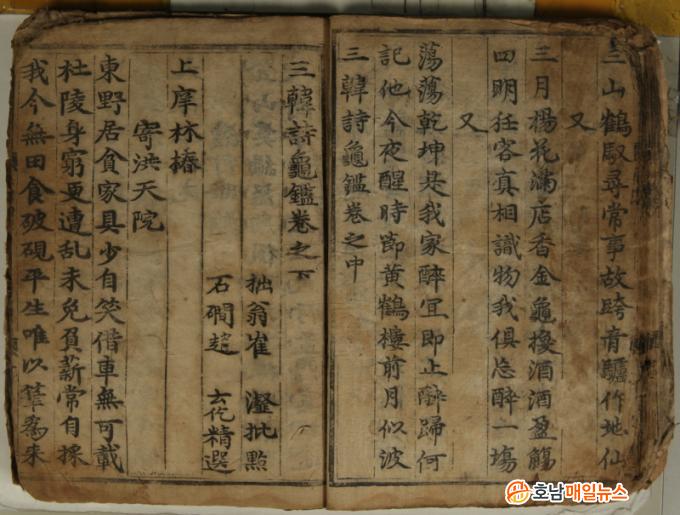 三山鶴馭尋常事故跨青驢作地仙
又
三月楊花滿店香金龜換酒酒盈觴
四明狂客真相識物我俱忘醉一場
又
蕩蕩乾坤是我家醉宜即止醉歸何
記他今夜醒時節黃鶴樓前月似波
三韓詩龜鑑卷之中
三韓詩龜鑑卷之下
拙翁崔 瀣批點
石磵趙 云仡精選
上庠林椿
寄洪天院
東野居貧家具少自笑借車無可載
杜陵身窮更遭乱未免負薪常自採
我今無田食破硯平生唯以筆爲耒
호남매일뉴스